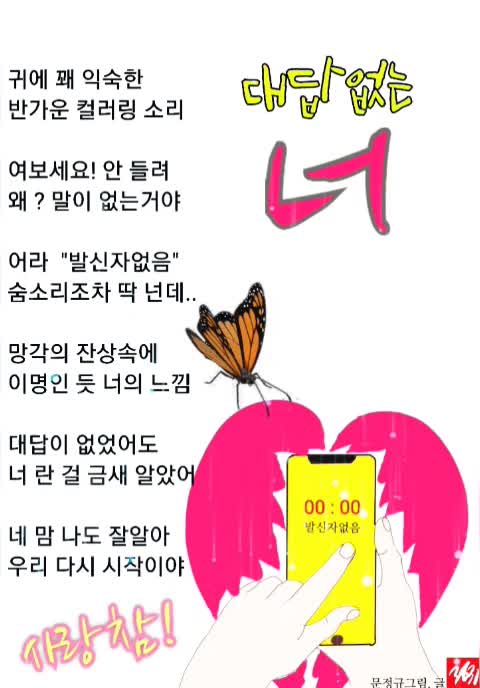 대답없는
너
귀에 꽤 익숙한
반가운 컬러링 소리
여보세요! 안 들려
왜 ? 말이 없는거야
어라 "발신자없음"
숨소리조차 딱 넌데..
망각의 잔상속에
이명인 듯 너의 느낌
대답이 없었어도
너 란 걸 금새 알았어
네 맘 나도 잘알아
우리 다시 시작이야
00 : 00
발신자없음
사랑참!
문정규그림, 글